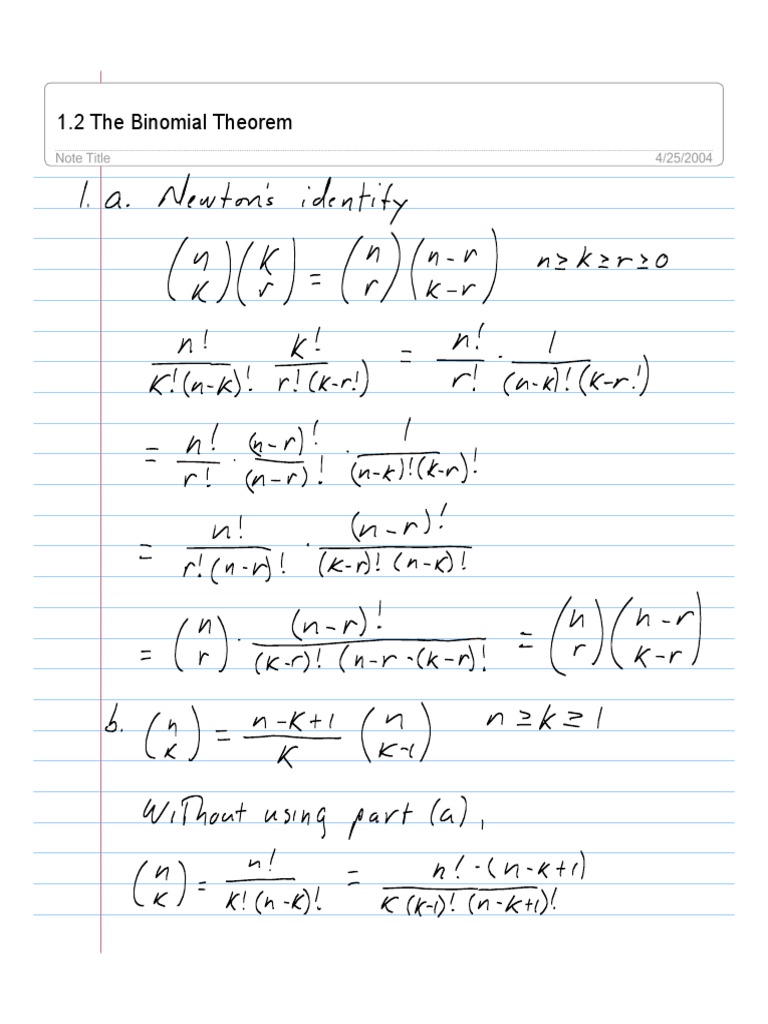 1.2 The Binomial Theorem
Note Title 4/25/2004
1. a. Newton's identify
(n K)(K r) = (n r)(n-r k-r) n≥k≥r≥0
n!/(K!(n-k)!) k!/(r!(k-r!)) = n!/r! · 1/((n-k)!(k-r!))
= n!/r! · (n-r)!/(n-r)! · 1/((n-k)!(k-r)!)
= n!/(r!(n-r)!) · (n-r)!/((k-r)!(n-k)!)
= (n r) · (n-r)!/((k-r)!(n-r-(k-r)!) = (n r)(n-r k-r)
b. (n k) = (n-k+1)/K (n k-1) n≥k≥1
Without using part (a),
(n k) = n!/(k!(n-k)!) = n!·(n-k+1)/(K(k-1)!(n-k+1)!)